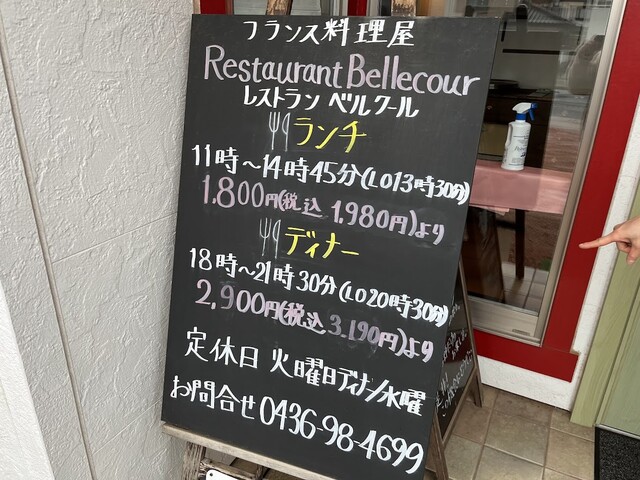 フランス料理屋
Restaurant Bellecour
レストラン ベルクール
ランチ
11時～14時45分(LO13時30分)
1.800円(税込 1.980円)より
ディナー
18時～21時30分(LO20時30分)
2.900円(税込 3.190円)より
定休日 火曜日ディナー/水曜
お問合せ 0436-98-4699